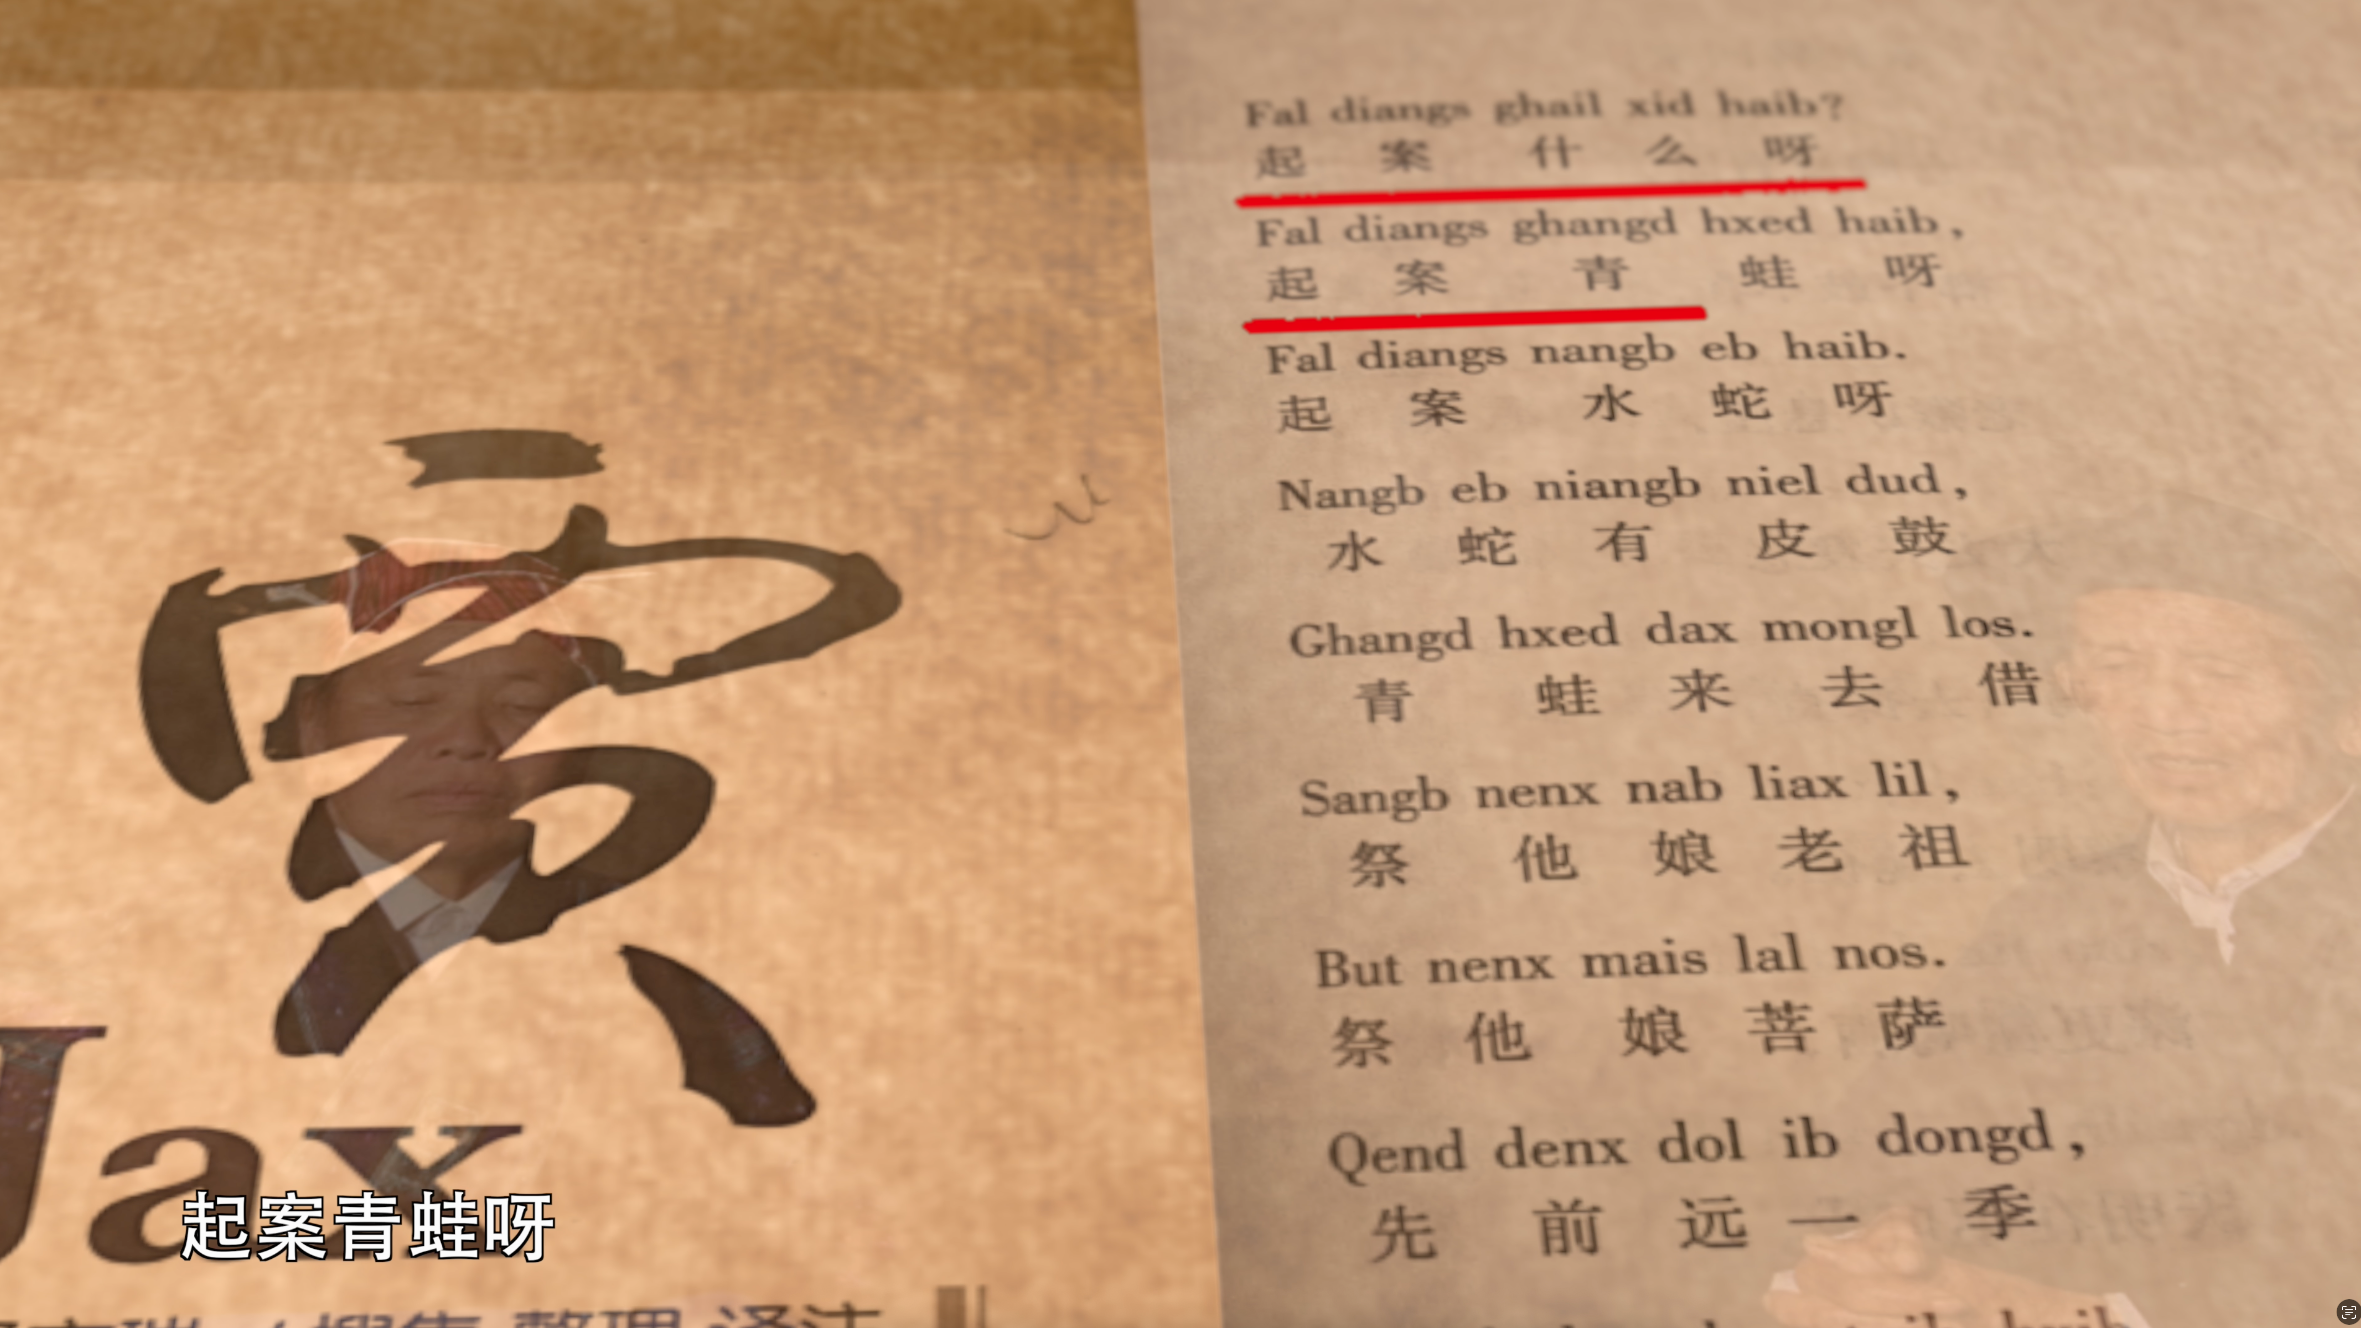 賨
Jax
搜集 整理 译注
Fal diangs ghail xid haib?
起 案 什 么 呀
Fal diangs ghangd hxed haib,
起 案 青 蛙 呀
Fal diangs nangb eb haib.
起 案 水 蛇 呀
Nangb eb niangb niel dud,
水 蛇 有 皮 鼓
Ghangd hxed dax mongl los.
青 蛙 来 去 借
Sangb nenx nab liax lil,
祭 他 娘 老 祖
But nenx mais lal nos.
祭 他 娘 菩 萨
Qend denx dol ib dongd,
先 前 远 一 季
起案青蛙呀